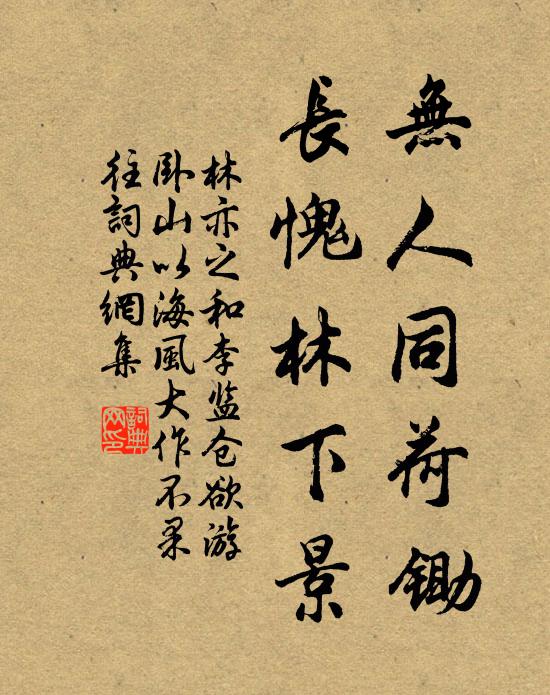 無人同荷鋤
長愧林下景
林亦之和李监仓欲游
卧山以海風大作不果
往詞典網集
詞典網印